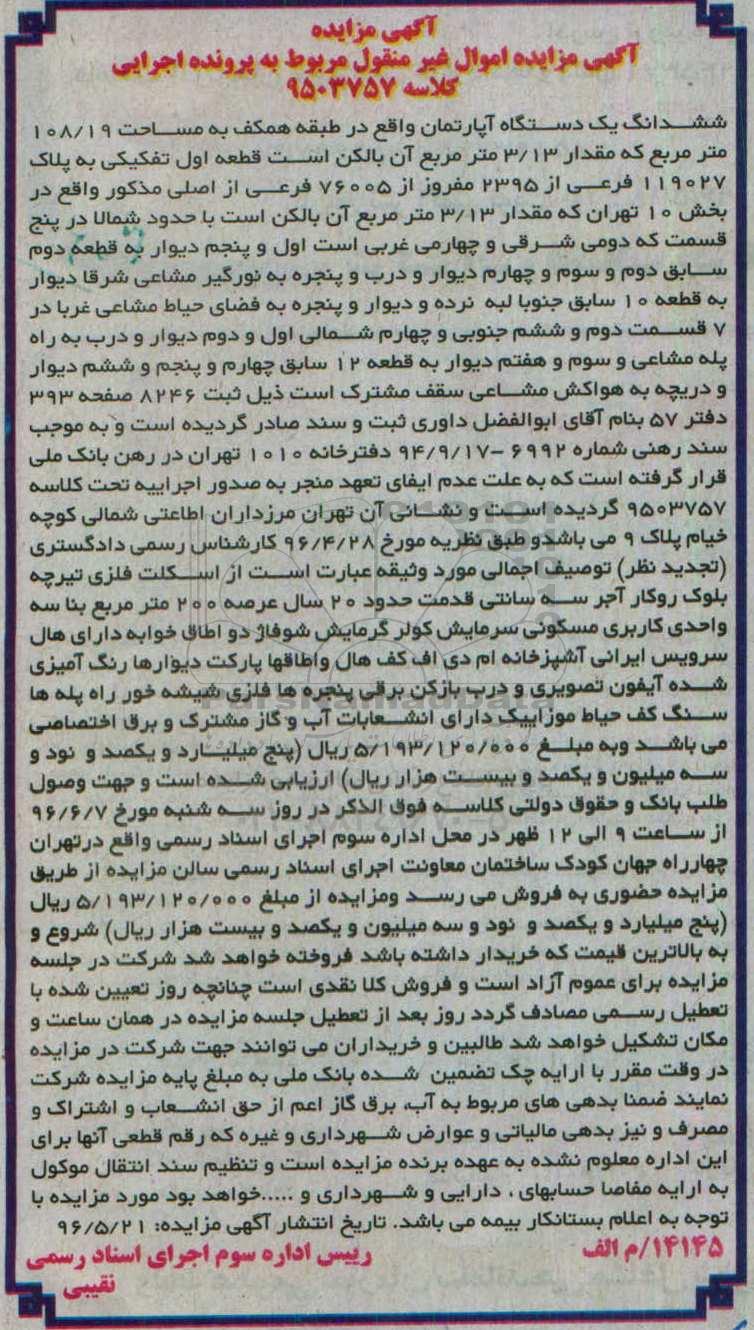 آگهی مزایده
آگهی مزایده اموال غیر منقول مربوط به پرونده اجرایی
کلاسه ۹۵۰۳۷۵۷
ششدانگ یک دستگاه آپارتمان واقع در طبقه همکف به مساحت ۱۰۸/۱۹
متر مربع که مقدار ۳/۱۳ متر مربع آن بالکن است قطعه اول تفکیکی به پلاک
۱۱۹۰۲۷ فرعی از ۲۳۹۵ مفروز از ۷۶۰۰۵ فرعی از اصلی مذکور واقع در
بخش ۱۰ تهران که مقدار ۳/۱۳ متر مربع آن بالکن است با حدود شمالا در پنج
قسمت که دومی شرقی و چهارمی غربی است اول و پنجم دیوار به قطعه دوم
سابق دوم و سوم و چهارم دیوار و درب و پنجره به نورگیر مشاعی شرقا دیوار
به قطعه ۱۰ سابق جنوبا لبه نرده و دیوار و پنجره به فضای حیاط مشاعی غربا در
۷ قسمت دوم و ششم جنوبی و چهارم شمالی اول و دوم دیوار و درب به راه
پله مشاعی و سوم و هفتم دیوار به قطعه ۱۲ سابق چهارم و پنجم و ششم دیوار
و دریچه به هواکش مشاعی سقف مشترک است ذیل ثبت ۸۲۴۶ صفحه ۳۹۳
دفتر ۵۷ بنام آقای ابوالفضل داوری ثبت و سند صادر گردیده است و به موجب
سند رهنی شماره ۶۹۹۲ -۹۴/۹/۱۷ دفترخانه ۱۰۱۰ تهران در رهن بانک ملی
قرار گرفته است که به علت عدم ایفای تعهد منجر به صدور اجراییه تحت کلاسه
۹۵۰۳۷۵۷ گردیده است و نشانی آن تهران مرزداران اطاعتی شمالی کوچه
خیام پلاک ۹ می باشدو طبق نظریه مورخ ۹۶/۴/۲۸ کارشناس رسمی دادگستری
(تجدید نظر) توصیف اجمالی مورد وثیقه عبارت است از اسکلت فلزی تیرچه
بلوک روکار آجر سه سانتی قدمت حدود ۲۰ سال عرصه ۲۰۰ متر مربع بنا سه
واحدی کاربری مسکونی سرمایش کولر گرمایش شوفاژ دو اطاق خوابه دارای هال
سرویس ایرانی آشپزخانه ام دی اف کف هال واطاقها پارکت دیوارها رنگ آمیزی
شده آیفون تصویری و درب بازکن برقی پنجره ها فلزی شیشه خور راه پله ها
سنگ کف حیاط موزاییک دارای انشعابات آب و گاز مشترک و برق اختصاصی
می باشد وبه مبلغ ۵/۱۹۳/۱۲۰/۰۰۰ ریال (پنج میلیارد و یکصد و نود و
سه میلیون و یکصد و بیست هزار ریال) ارزیابی شده است و جهت وصول
طلب بانک و حقوق دولتی کلاسه فوق الذکر در روز سه شنبه مورخ ۹۶/۶/۷
از ساعت ۹ الی ۱۲ ظهر در محل اداره سوم اجرای اسناد رسمی واقع درتهران
چهارراه جهان کودک ساختمان معاونت اجرای اسناد رسمی سالن مزایده از طریق
مزایده حضوری به فروش می رسد ومزایده از مبلغ ۵/۱۹۳/۱۲۰/۰۰۰ ریال
(پنج میلیارد و یکصد و نود و سه میلیون و یکصد و بیست هزار ریال) شروع و
به بالاترین قیمت که خریدار داشته باشد فروخته خواهد شد شرکت در جلسه
مزایده برای عموم آزاد است و فروش کلا نقدی است چنانچه روز تعیین شده با
تعطیل رسمی مصادف گردد روز بعد از تعطیل جلسه مزایده در همان ساعت و
مکان تشکیل خواهد شد طالبین و خریداران می توانند جهت شرکت در مزایده
در وقت مقرر با ارایه چک تضمین شده بانک ملی به مبلغ پایه مزایده شرکت
نمایند ضمنا بدهی های مربوط به آب، برق گاز اعم از حق انشعاب و اشتراک و
مصرف و نیز بدهی مالیاتی و عوارض شهرداری و غیره که رقم قطعی آنها برای
این اداره معلوم نشده به عهده برنده مزایده است و تنظیم سند انتقال موکول
به ارایه مفاصا حسابهای ، دارایی و شهرداری و .....خواهد بود مورد مزایده با
توجه به اعلام بستانکار بیمه می باشد. تاریخ انتشار آگهی مزایده: ۹۶/۵/۲۱
۱۴۱۴۵/م الف
رییس اداره سوم اجرای اسناد رسمی
نقیبی